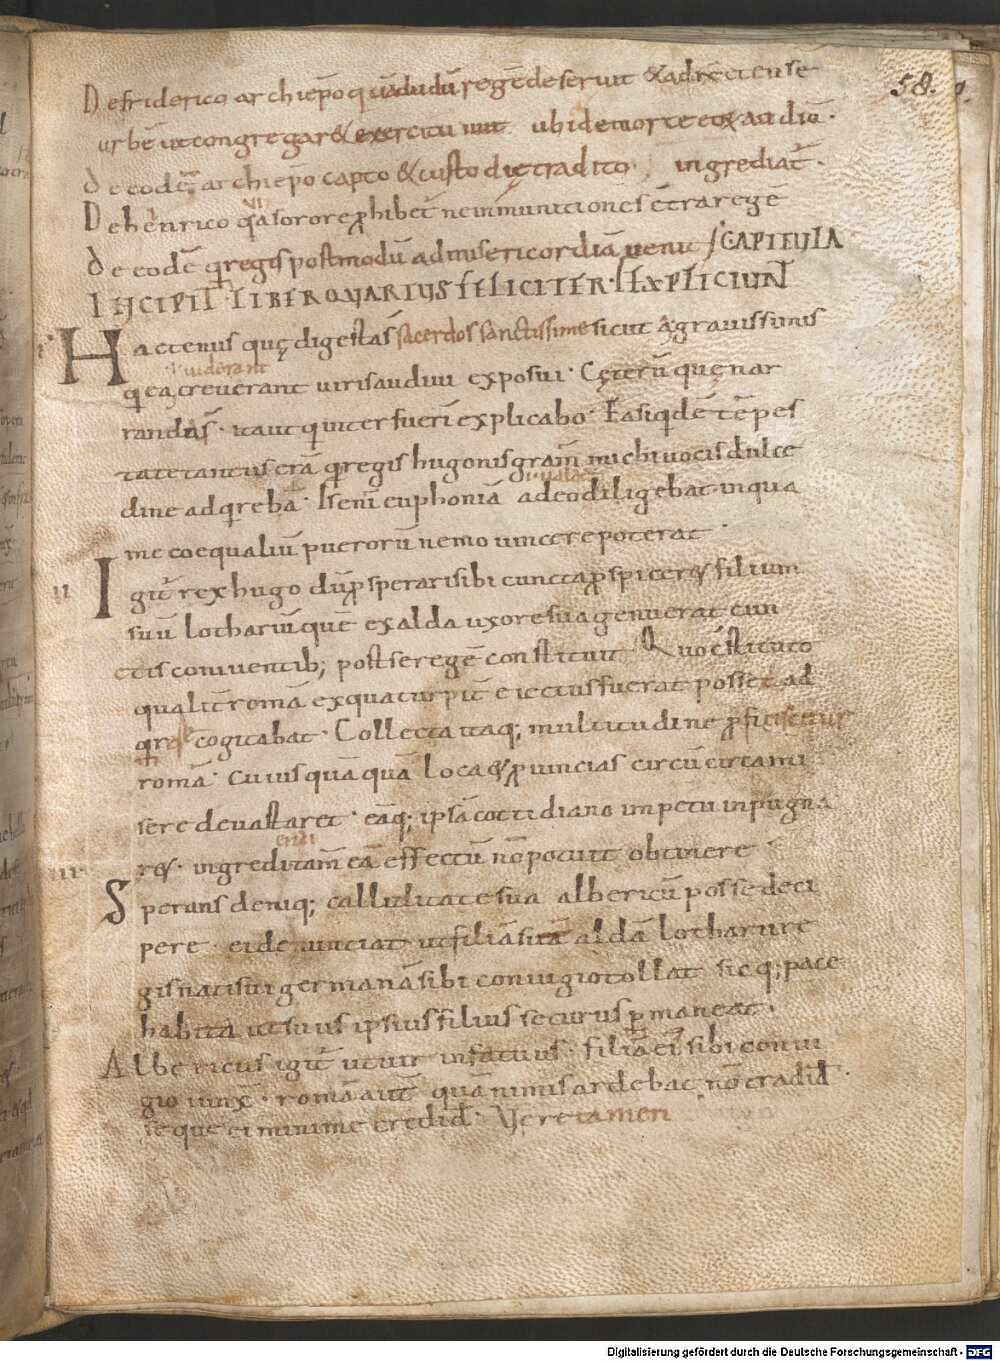 58.
De friderico archiepo q uădudū regē deseruit & adrecense
urbē ut congregar& exercitū iuit ubi de morte eōx audiu.
de eodē archiepo capto & custodię tradito ingrediat̄.
De hēnrico q̄a sorore ꝓhibet ne in munitionē sē trarege
de eodē q̄ regis postmodū ad misericordiā uenit / CAPITULA
INCIPIT LIBER QVARTVS FELICITER. EXPLICIUNT
i Hactenus quę digesta s̄ sacerdos sanctissime sicut a grauissimis
uiderant
q ea creuerant uiris audiui exposui. Cęterū quę nar
randa s̄. ut aut q interfuerī explicabo. Ea siqdē tēpes
tate tantus erā q regis hugonis gram̄ michi uocis dulce
i. ualde
dine adqrebā. Is enī euphoniā adeo diligebat in qua
me coequaliū puerorū nemo uincere poterat.
ii Igit̄ rex hugo dū ꝓsperari sibi cuncta ꝓspicer& filium
suū lothariū quē ex alda uxore sua genuerat cun
ctis coniuentib; post se regē constituit. Quo cstituto
qualit̄ romā ex qua turpit̄ eiectus fuerat posset ad
qrere cogitabat. Collecta itaq; multitudine ꝓficiscitur
romā. Cuius quāquā loca & ꝓuincias circū circa mi
sere deuastaret. eāq; ipsā cottidiano impetu inpugna
endi
r&. ingredi tam̄ eā effectū nō potuit obtinere.
iii Sperans deniq; calliditate sua albericū posse deci
pere. ei denunciat ut filiā suā aldā lotharii re
gis nati sui germanā sibi coniugio tollat sicq; pace
habita ut suus ipsius filius securus ꝑmaneat.
Albericus igit̄ ut uir infatuus. filiā ei sibi coniu
gio iunx̄. romā aut̄ quā nimis ardebat nō tradid̄.
seque ei minime credid̄. Verctamen